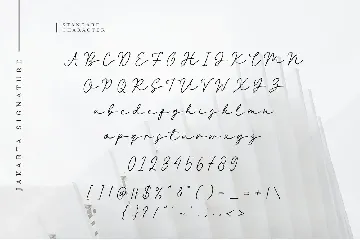 STANDARD
CHARACTER
JAKARTA SIGNATURE
A B C D E F G H I J K L M N
O P Q R S T U V W X Y Z
a b c d e f g h i j k l m n
o p q r s t u v w x y z
0 1 2 3 4 5 6 7 8 9